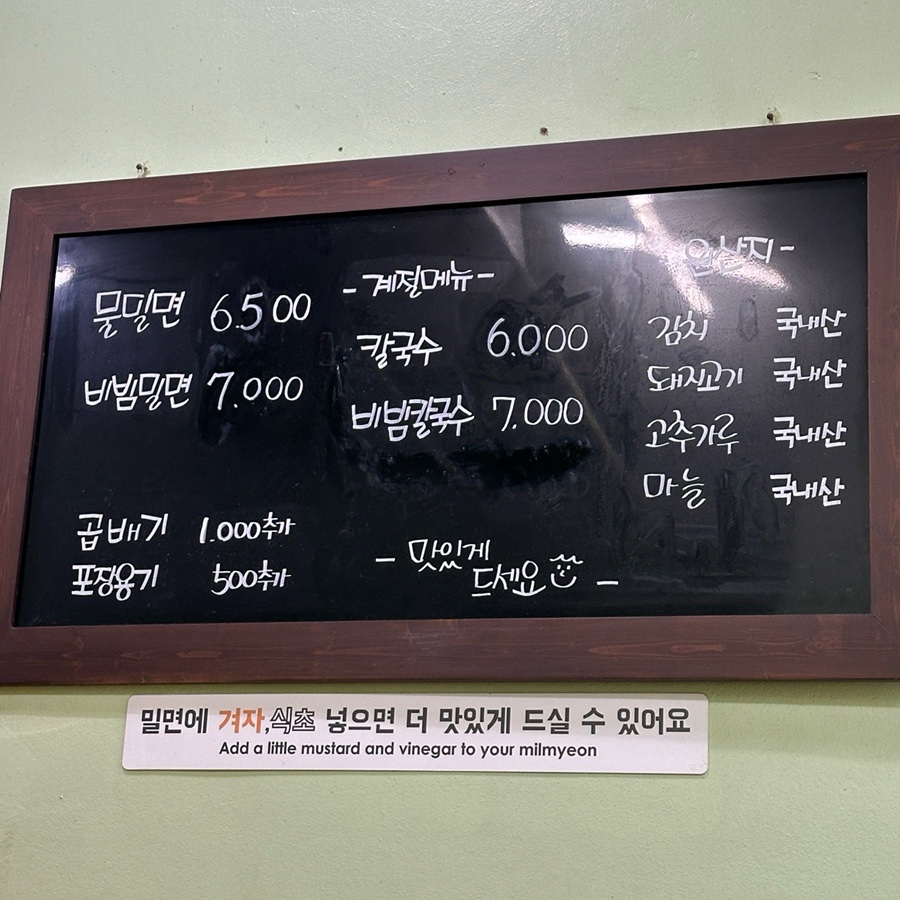 물밀면 6.500
비빔밀면 7.000
곱배기 1.000추가
포장용기 500추가
- 계절메뉴 -
칼국수 6.000
비빔칼국수 7.000
- 맛있게
드세요 -
원산지 -
김치 국내산
돼지고기 국내산
고추가루 국내산
마늘 국내산
밀면에 겨자,식초 넣으면 더 맛있게 드실 수 있어요
Add a little mustard and vinegar to your milmyeon